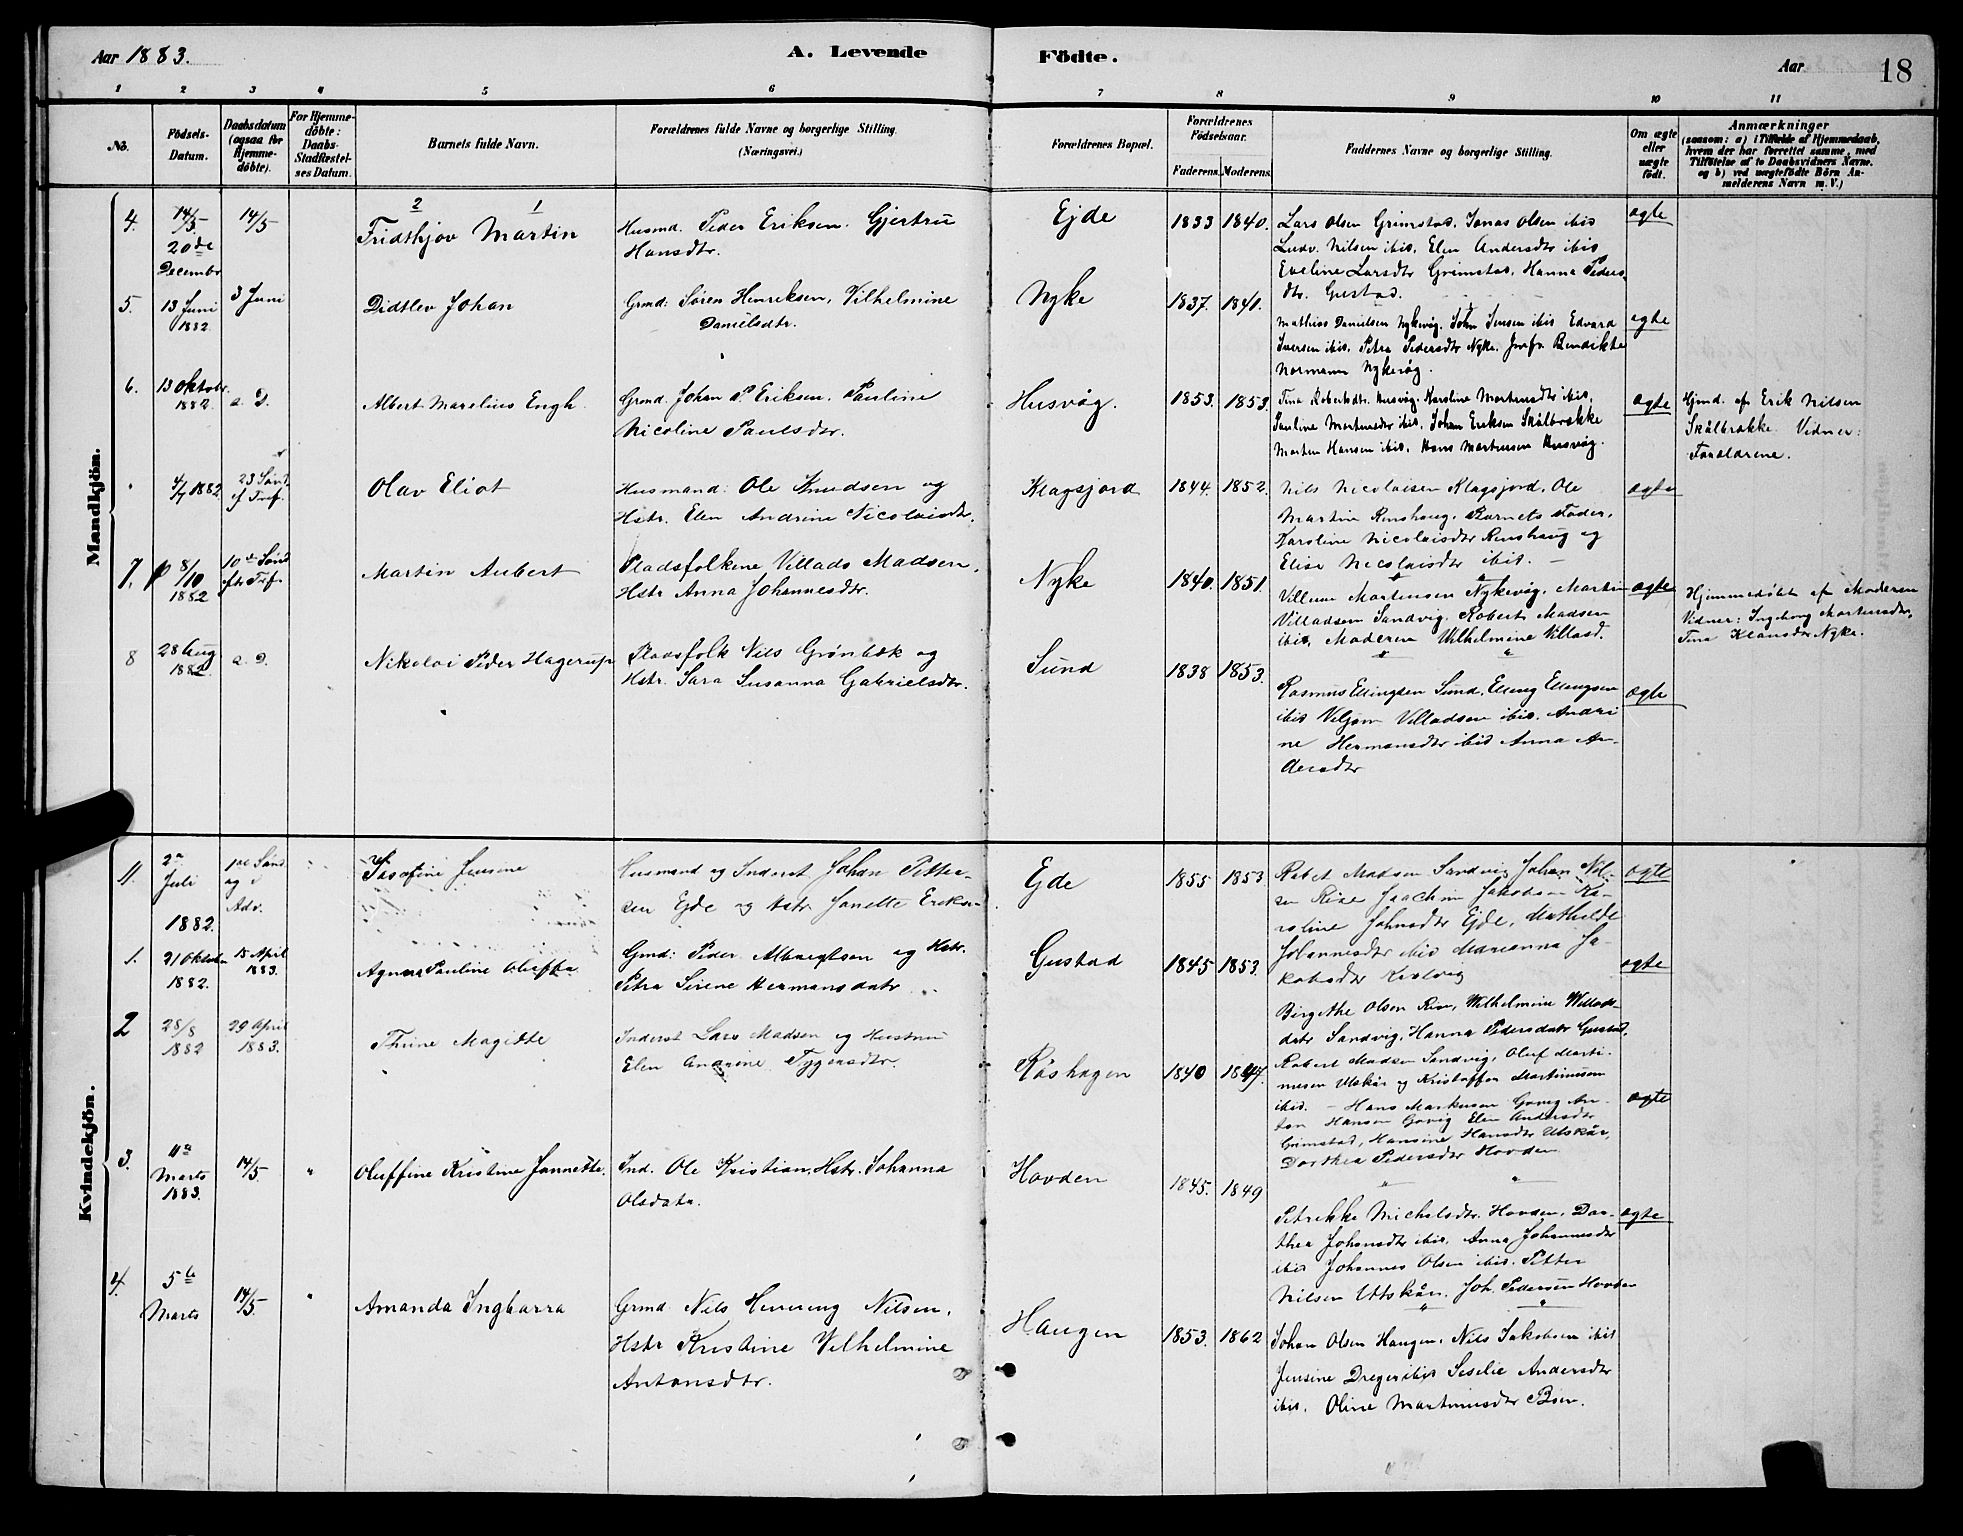 Aar 1883.
A. Levende
Födte.
Aar
18
1 2 3 4 5 6 7 8 9 10 11
No.
Födsels-Datum.
Daabsdatum (ogsaa for Hjemme-döbte).
For Hjemme-döbte: Daabs-Stadfæstel-ses Datum.
Barnets fulde Navn.
Forældrenes fulde Navne og borgerlige Stilling.
(Næringsvei.)
Forældrenes Bopæl.
Forældrenes Födselsaar.
Faderens. Moderens.
Faddernes Navne og borgerlige Stilling.
Om ægte eller uægte födt.
Anmærkninger
(saasom: a) i Tilfælde af Hjemmedaab,
hvem der har forrettet samme, med
Tilföielse af to Daabsvidners Navne,
og b) ved uægtefödte Börn An-
melderens Navn m. V.)
Mandkjön.
4.
14/5
20de
Decembr
14/5
2 1
Fridthjov Martin
Husmd. Peder Eriksen. Gjertru
Hansdtr.
Ejde
1833 1840.
Lars Olsen Grimstad, Jonas Olsen ibid
Ludv. Nilsen ibid, Elen Andersdtr ibid
Eveline Larsdtr Grimstad, Hanna Peders
dtr. Gustad.
ægte
5.
13 Juni
1882.
3 Juni
Didtlev Johan
Grmd: Søren Henriksen, Vilhelmine
Danielsdtr.
Nyke
1837. 1840.
Mathias Danielsen Nykevåg. John Jensen ibid Edvard
Iversen ibid. Petra Pedersdtr Nyke. Jmfr Bendikte
Normann Nykevåg.
ægte
6.
13 Oktobr.
1882.
a. D.
Albert Marelius Engh.
Grmd. Johan P Eriksen. Pauline
Nicoline Paulsdtr.
Husvåg.
1853. 1853.
Tina Robertsdtr. Husvåg. Karoline Mortensdtr ibid,
Pauline Mortensdtr ibid, Johan Eriksen Skålbrække
Morten Hansen ibid, Hans Martinsen Husvåg.
ægte
Hjmd. af Erik Nilsen
Skålbrække Vidner:
Forældrene.
4/7 1882.
23 Sønd.
ef Tref.
Olav Eliot
Husmand: Ole Knudsen og
Hstr. Elen Andrine Nicolaisdtr.
Klagsjord
1844. 1852.
Nils Nicolaisen Klagsjord, Ole
Martin Renshaug, Barnets Fader,
Karoline Nicolaisdtr Renshaug og
Elise Nicolaisdtr ibid. —
ægte
7.
8/10
1882
10de Sønd
eftr Tref.
Martin Aubert
Pladsfolkene Villads Madsen,
Hstr Anna Johannesdtr.
Nyke
1840. 1851.
Villum Martensen Nykevåg. Martin
Villadsen Sandvig. Robert Madsen
ibid, Moderen Wilhelmine Villasd.
ægte
Hjemmedøbt af Moderen
Vidner: Ingeborg Mortensdtr,
Tina Klausdtr Nyke.
8
28 Aug
1882
a. D.
Nikolai Peder Hagerup
Pladsfolk Nils Grønbæk og
Hstr. Sara Susanna Gabrielsdtr.
Sund
1838 1853.
Rasmus Ellingsen Sund, Elling Ellingsen
ibid Viljam Villadsen ibid. Andri
ne Hermansdtr ibid Anna An-
dersdtr
ægte
Kvindekjön.
11.
2n
Juli
1882.
1ste Sønd
ag i
Adv.
Josefine Jensine
Husmand og Inderst Johan Petter-
sen Ejde og Hstr Janette Eriksd
Ejde
1855 1853
Robet Madsen Sandvig Johan Nil-
sen Rise Joachim Jakobsen Ka-
roline Johnsdtr Ejde, Mathilde
Johannesdtr ibid Marianna Ja-
kobsdtr
ægte
1.
21 Oktober
1882.
15 April
1883.
Agnes Pauline Oluffa
Grmd: Peder Albregtsen og Hstr.
Petra Sirene Hermansdatr
Gustad
1845 1853.
Birgithe Olsen Rise, Wilhelmine Willads
datr Sandvig, Hanna Pedersdatr Gustad,
Robert Madsen Sandvig, Oluf Marti-
nusen Utskår og Kristoffer Martinusen
ibid. —
ægte
2
28/8
1882
29 April
1883.
Thrine Magitte
Inderst Lars Madsen og Hustru
Elen Andrine Tygersdtr.
Råshagen
1840 1847.
Hans Markusen Govig An-
ton Hansen Govig Elen Andersdtr
Grimstad, Hansine Hansdtr Utskår,
Dorthea Pedersdtr Hovden
ægte
3.
11te
Marts
1883.
14/5
"
Oluffine Kristine Jannette.
Ind. Ole Kristian, Hstr. Johanna
Olsdatr
Hovden
1845. 1849
Petrikke Michelsdtr. Hovden, Dor-
thea Johansdtr ibid, Anna Johannesdtr
ibid Johannes Olsen ibid. Petter
Nilsen Utskår. Joh. Pedersen Hovden
ægte
4.
5te
Marts
14/5
"
Amanda Ingbarra
Grmd. Nils Henning Nilsen,
Hstr Kristine Wilhelmine
Antonsdtr.
Haugen
1853. 1862
Johan Olsen Haugen, Nils Jakobsen ibid
Jensine Dreger ibid Seselie Andersdtr
ibid. Oline Martinusdtr Bøen.